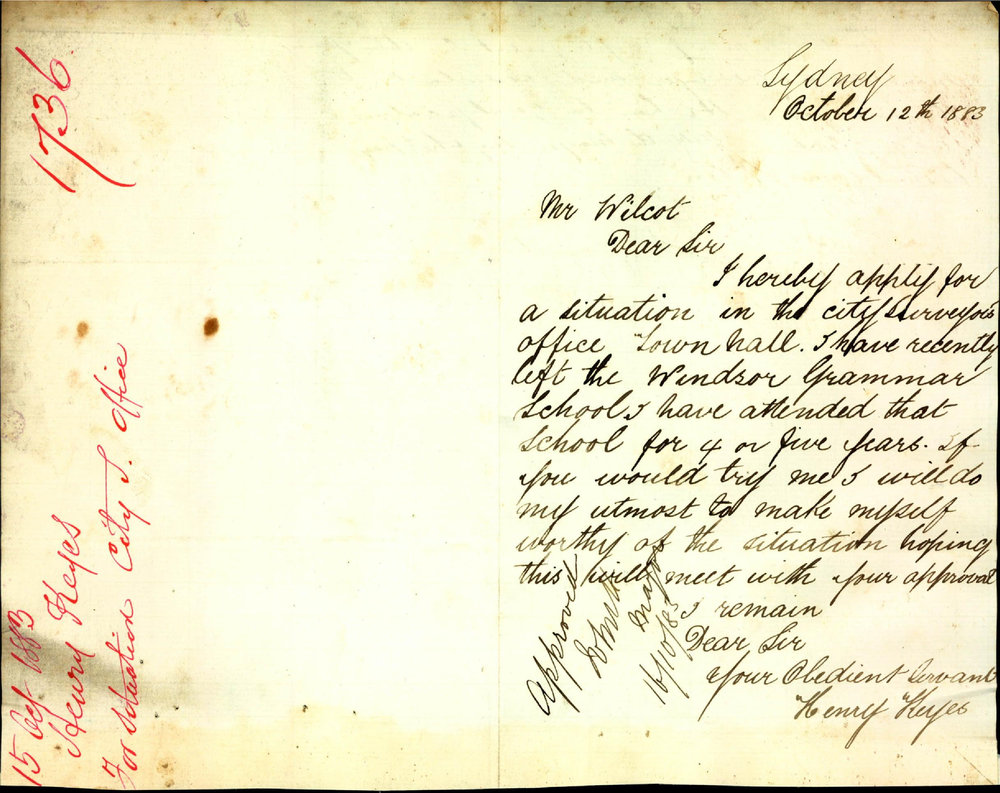 1736
15 Oct 1883
Henry Keyes
For situation City S. Office
Sydney
October 12th 1883
Mr Wilcot
Dear Sir
I hereby apply for
a situation in the city surveyors
office Town hall. I have recently
left the Windsor Grammar
School I have attended that
School for 4 or five years. If
you would try me I will do
my utmost to make myself
worthy of the situation hoping
this will meet with your approval
I remain
Dear Sir
Your Obedient Servant
Henry Keyes
Approved
Mayor
16/10/83